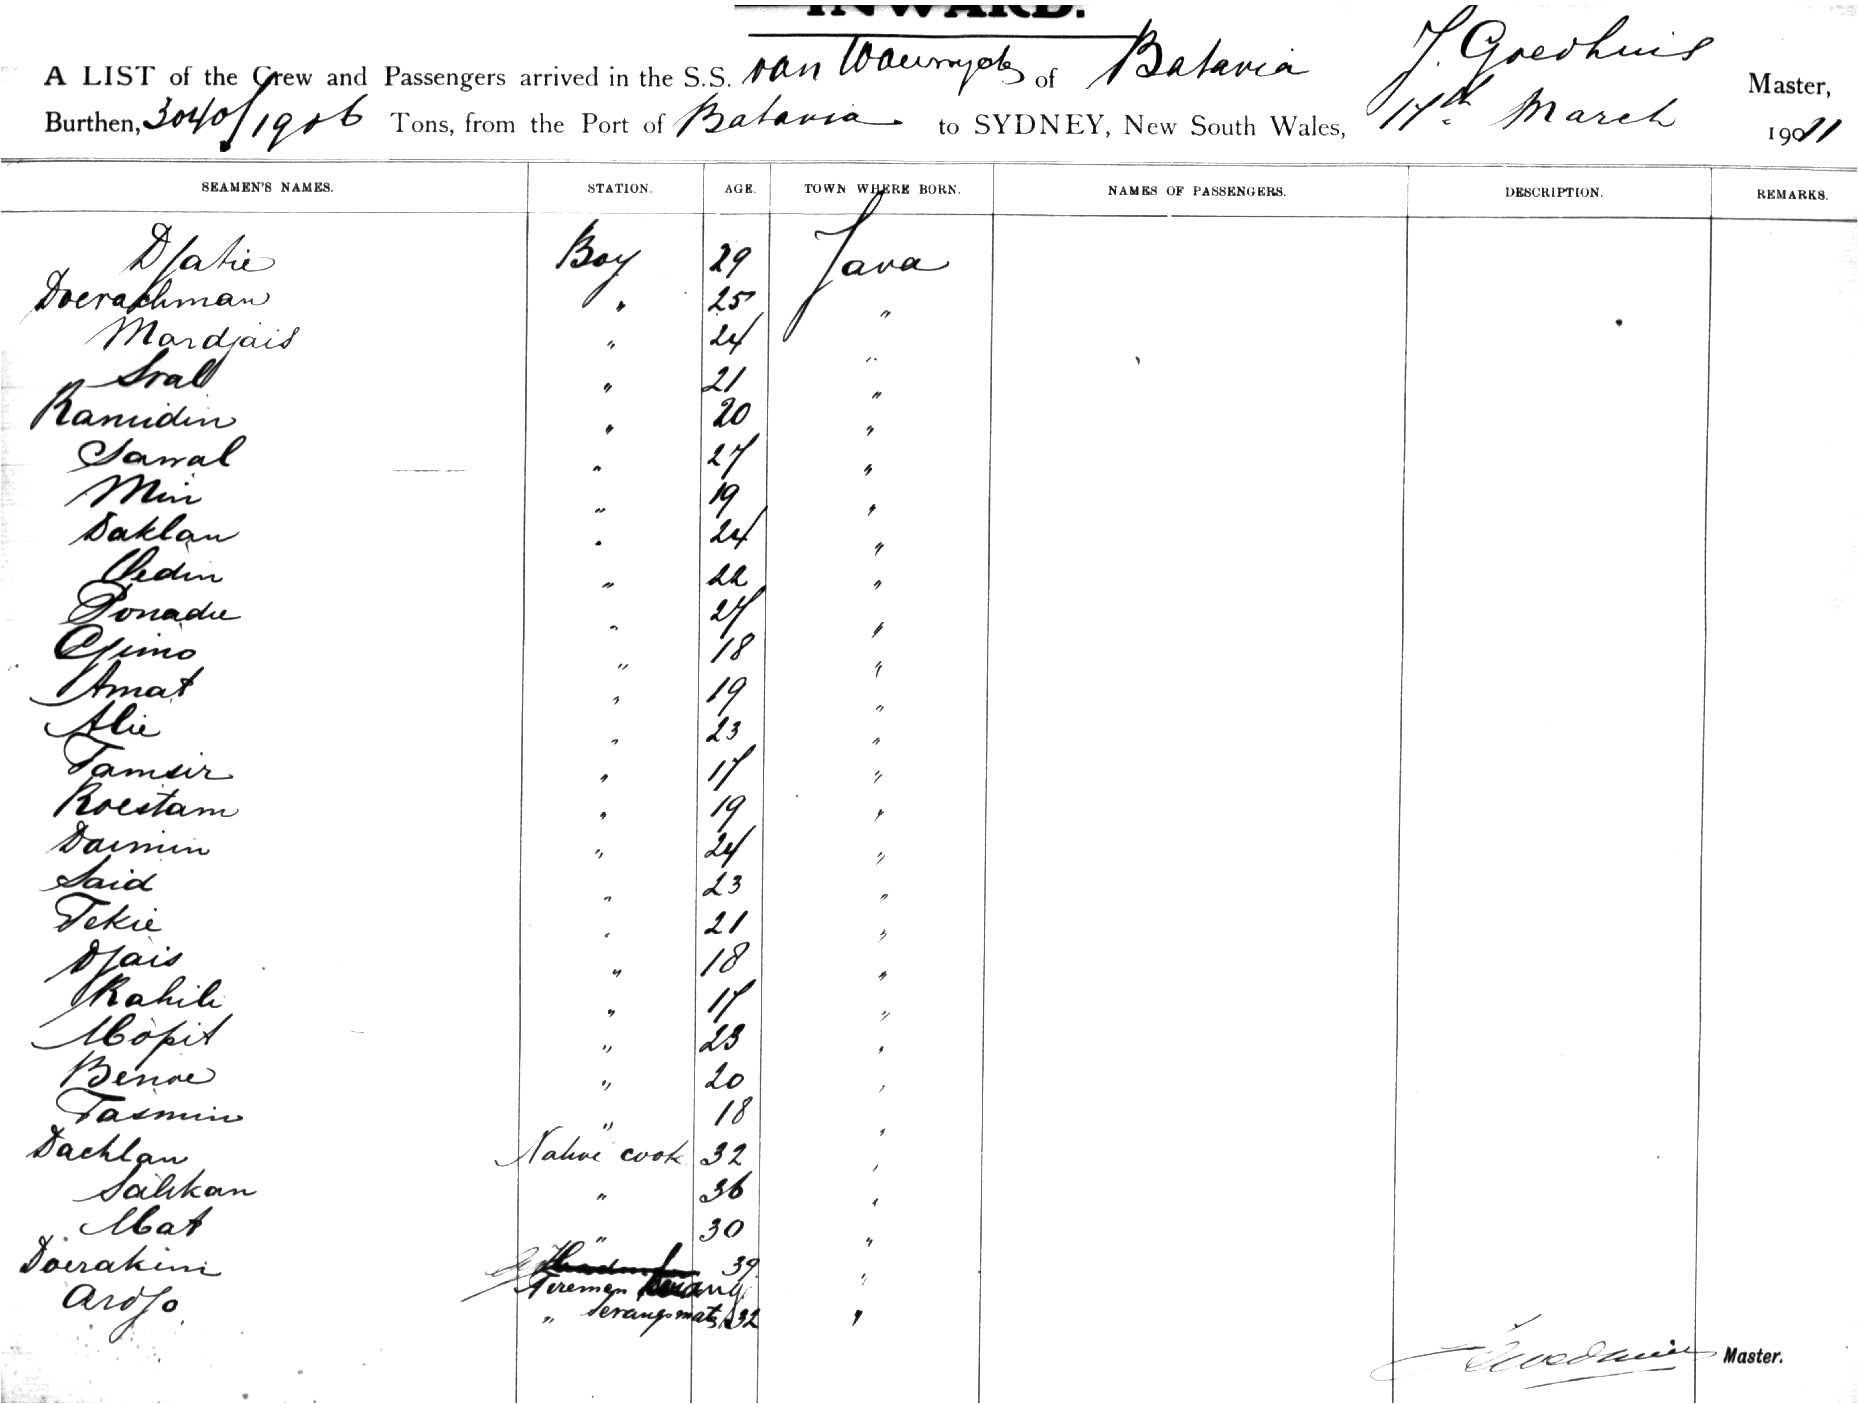 INWARD.
A LIST of the Crew and Passengers arrived in the S.S. van Waerwyck of Batavia J. Goedhuis Master,
Burthen, 3040/1906 Tons, from the Port of Batavia to SYDNEY, New South Wales, 17th March 1911
SEAMEN'S NAMES. STATION. AGE. TOWN WHERE BORN. NAMES OF PASSENGERS. DESCRIPTION. REMARKS.
Djatie Boy 29 Java
Doerachman " 25 "
Mardjais " 24 "
Sral " 21 "
Ramidin " 20 "
Sawal " 27 "
Min " 19 "
Daklan " 24 "
Oedin " 22 "
Ponadie " 27 "
Djimo " 18 "
Amat " 19 "
Alie " 23 "
Tamsir " 17 "
Roestam " 19 "
Daimin " 24 "
Said " 23 "
Tekie " 21 "
Djais " 18 "
Rahili " 17 "
Mopit " 23 "
Benoe " 20 "
Tasmin " 18 "
Dachlan Native cook 32 "
Salikan " 36 "
Mat " 30 "
Doerakim Firemen Serang 39 "
Ardjo " Serangsmate 32 "
Master.